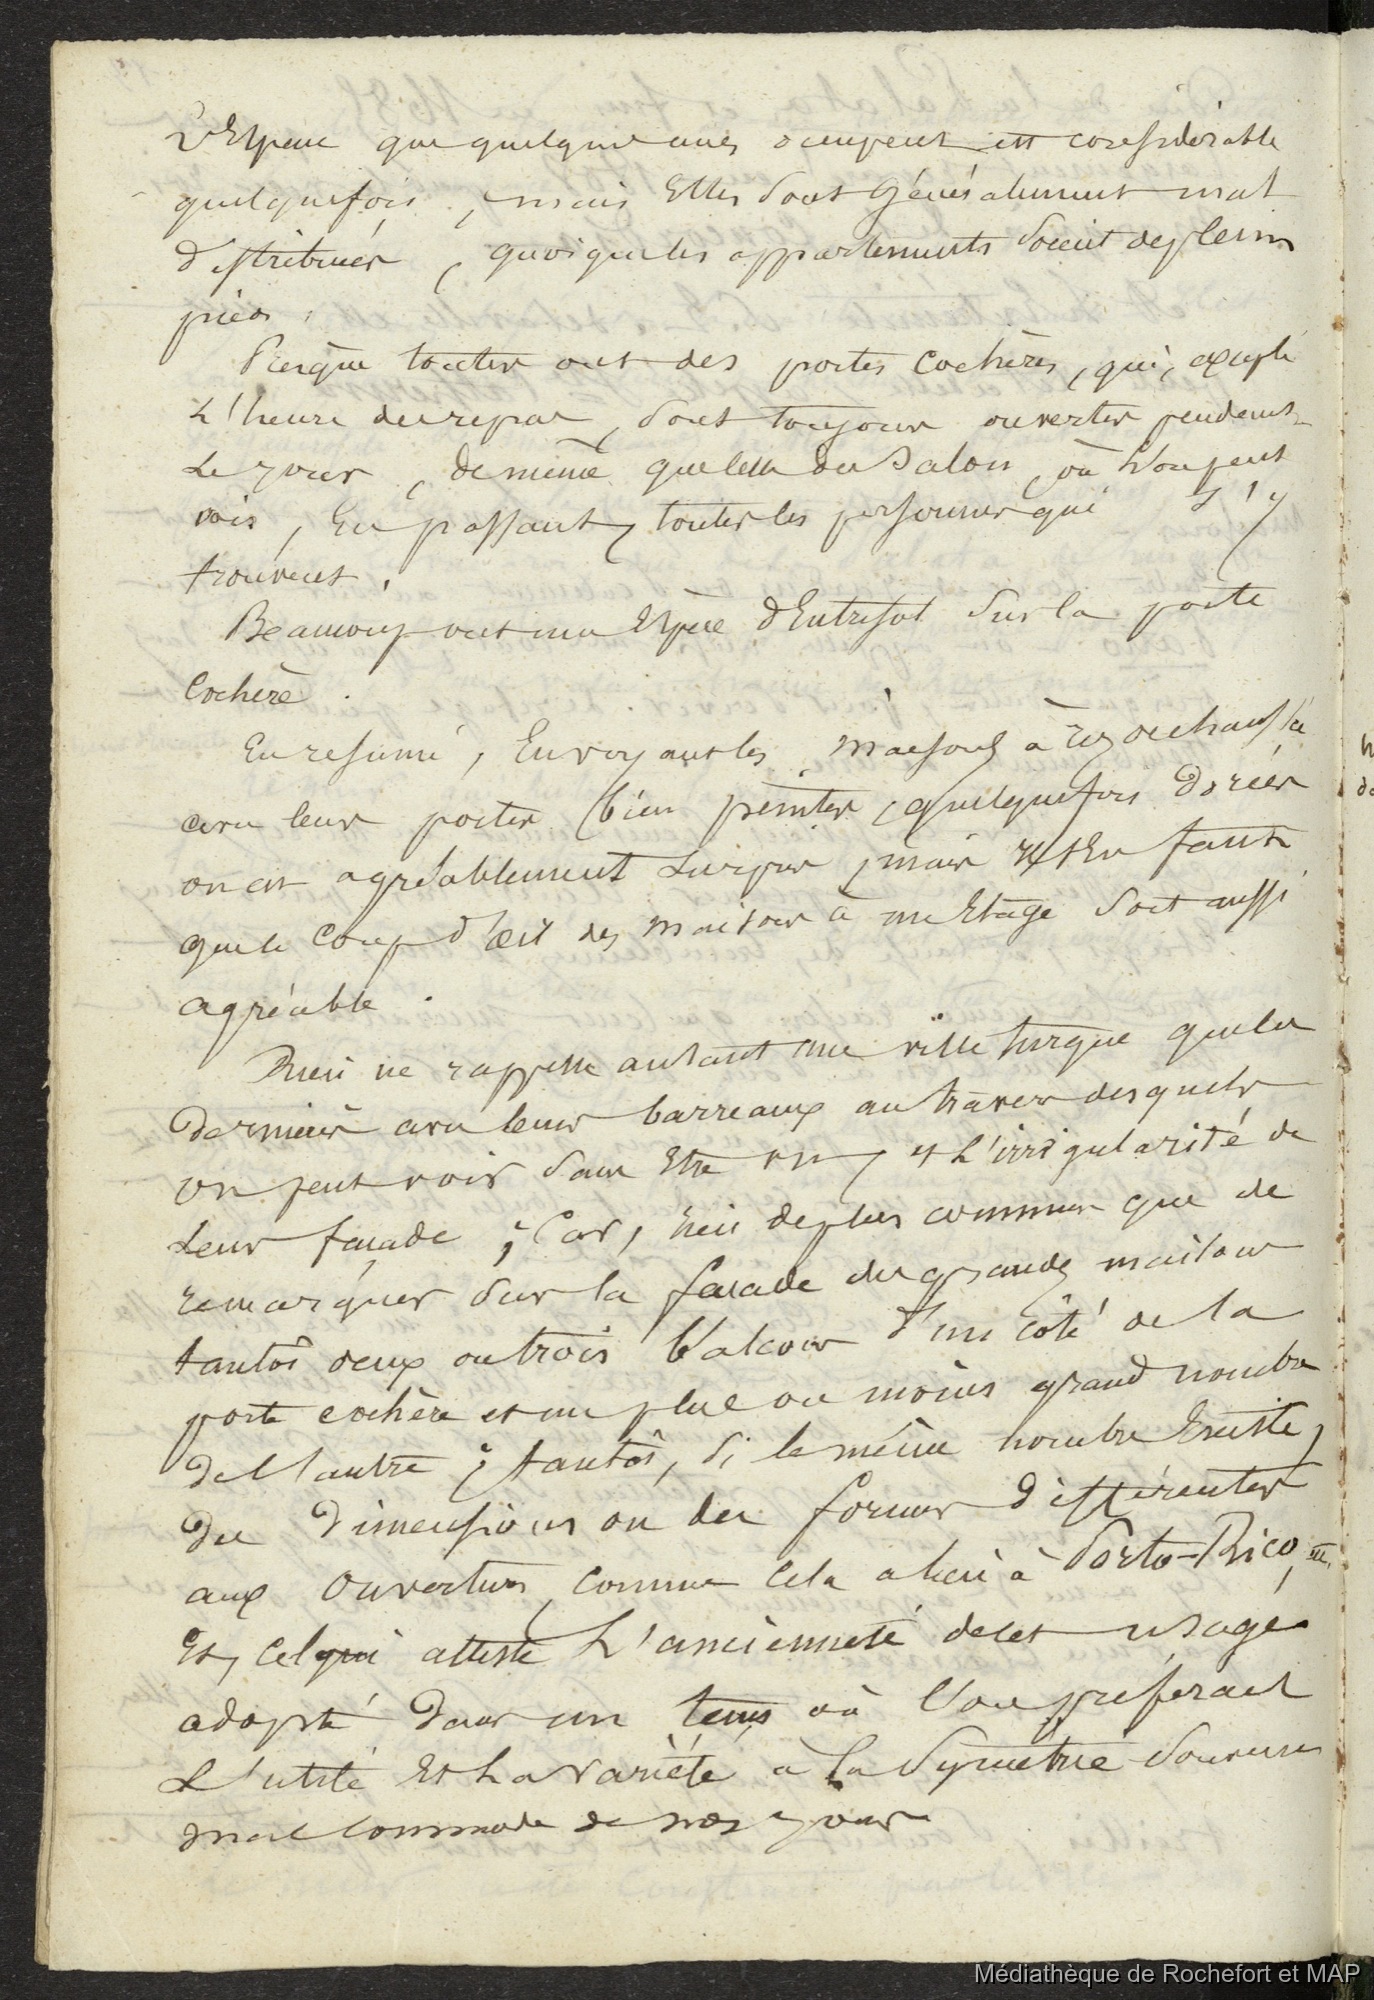 L'Espace que quelques unes occupent est considérable
quelquefois, mais Elles sont généralement mal
distribuées, quoique les appartements soient de plein
pied.
Presque toutes ont des portes cochères, qui, excepté
L'heure du repas, sont toujours ouvertes pendant
Le jour, de même que celle du salon, où L'on peut
voir, En passant, toutes les personnes qui s'y
trouvent.
Beaucoup ont une Espèce d'Entresol sur la porte
cochère.
En résumé, En voyant les maisons à rez de chaussée
avec leurs portes bien peintes, quelquefois dorées
on est agréablement surpris, mais il s'En faut
que le coup d'œil des maisons à un Etage soit aussi
agréable.
Rien ne rappelle autant une ville turque que les
dernières avec leurs barreaux au travers desquels
on peut voir sans Etre vu, et L'irrégularité de
Leur façade; Car, rien de plus commun que de
remarquer sur la façade des grandes maisons
tantôt deux ou trois balcons d'un côté de la
porte cochère et un plus ou moins grand nombre
de l'autre; tantôt, si le même nombre Existe,
des dimensions ou des formes différentes
aux ouvertures, comme cela a lieu à Porto-Rico,
Et, ce qui atteste L'ancienneté de cet usage
adopté dans un tems où l'on préférait
L'utile Et La variété à la symétrie souvent
mal commode de nos jours
Médiathèque de Rochefort et MAP